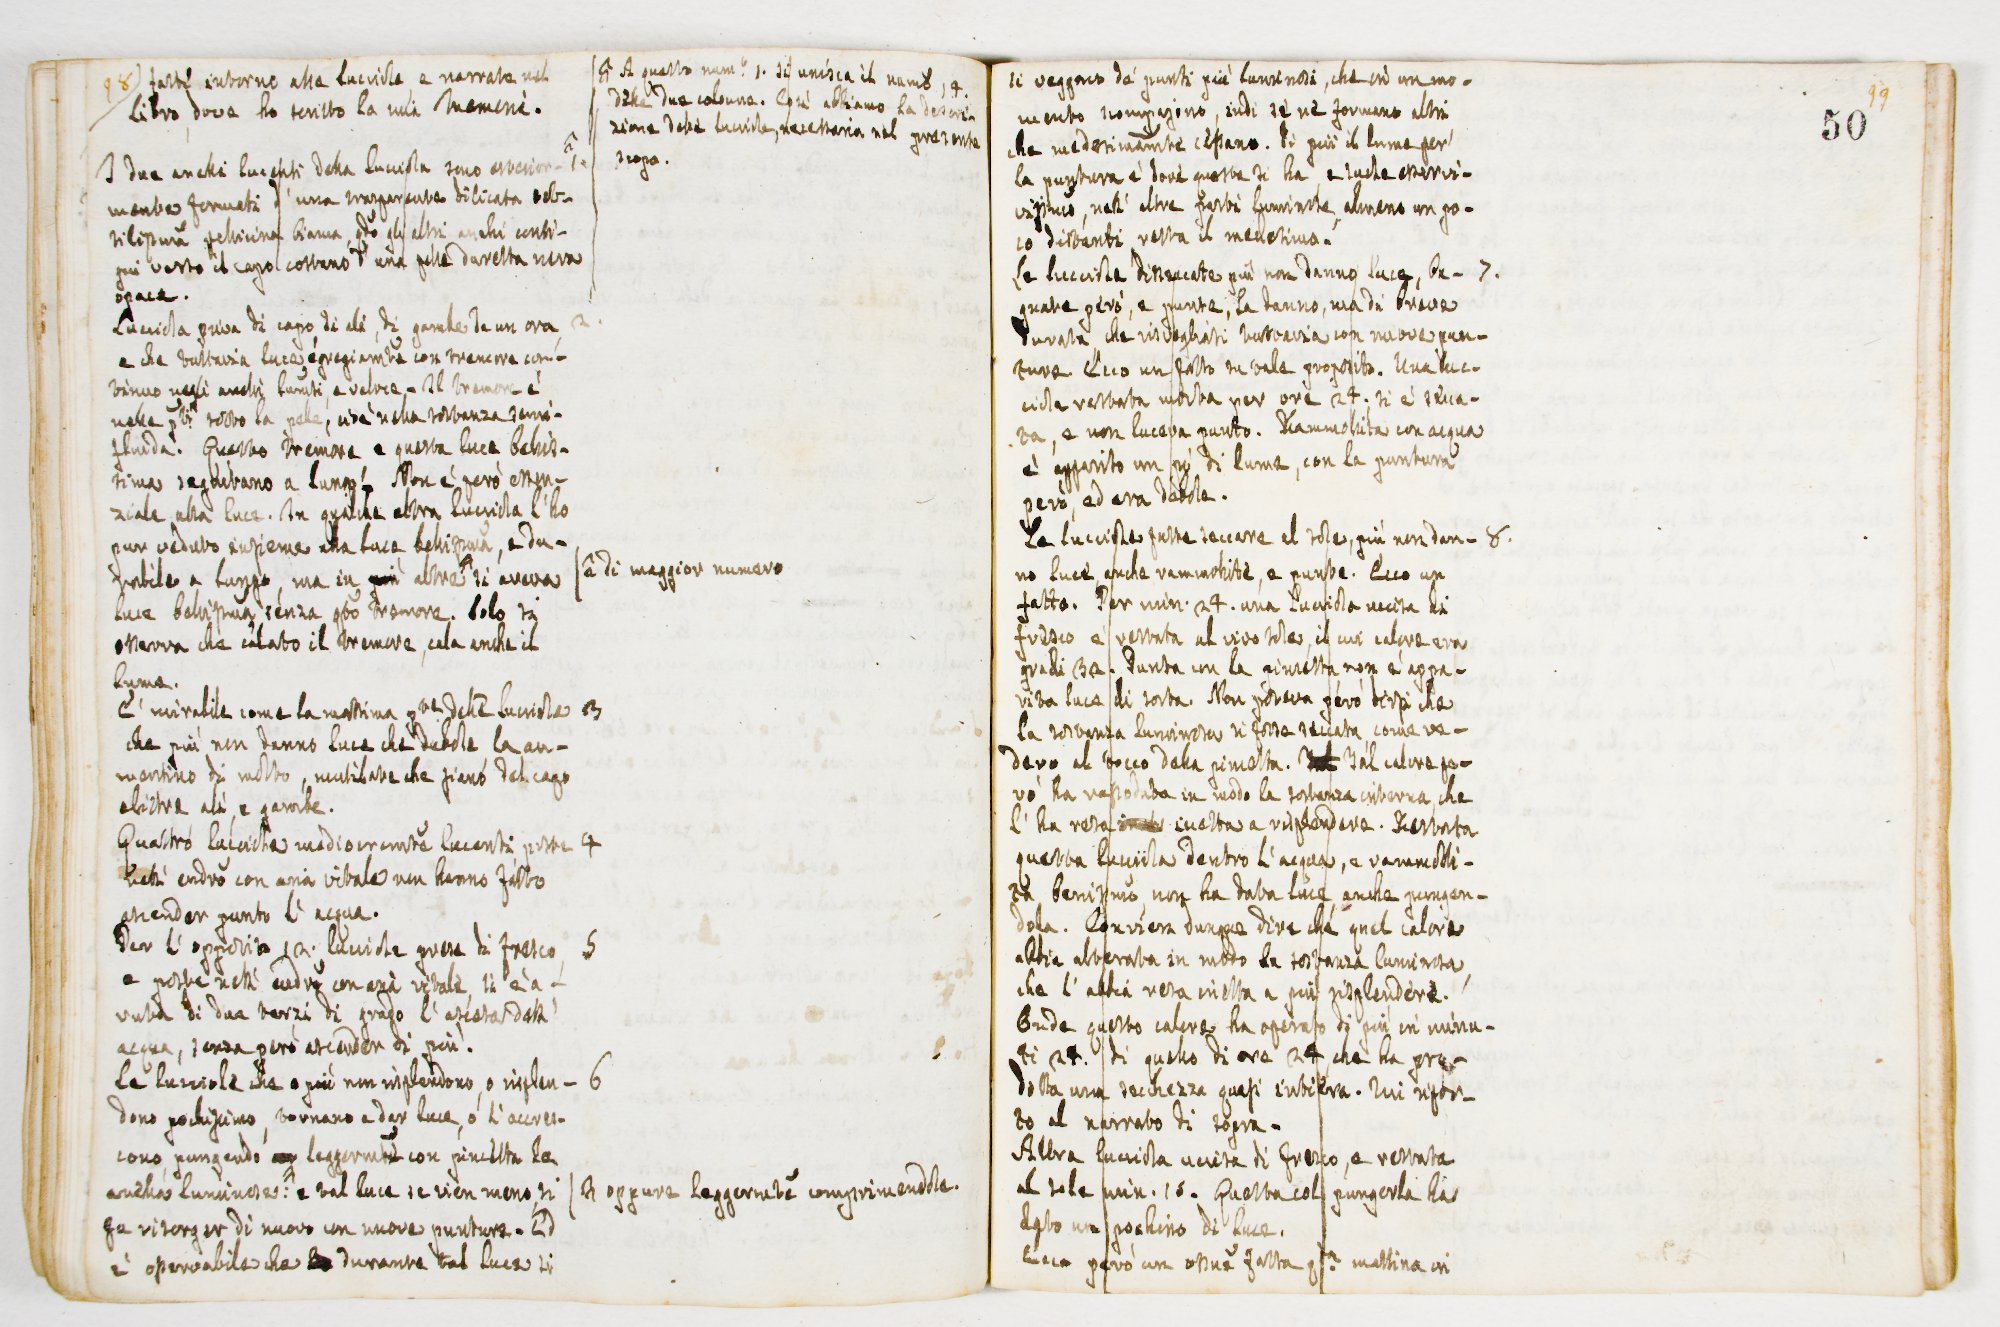 98) fatti intorno alle lucciole e narrate nel
libro, dove ho scritto la mia Memoria.
I due anelli lucenti della lucciola sono esterior- 1.
mente formati d'una trasparente dilicata sot-
tilissima pellicina bianca, qdo gli altri anelli conti-
gui verso il capo constano d'una pelle duretta nera
opaca.
Lucciola priva di capo, di ali, di gambe da un ora, 2.
e che tuttavia luce egregiamte con tremore con-
tinuo negli anelli lucenti, e veloce. Il tremore è
nella pte sotto la pelle, cioè nella sostanza semi-
fluida. Questo tremore e questa luce bellis-
sima seguitano a lungo. Non è però essen-
ziale alla luce. In qualche altra lucciola l'ho
pur veduto insieme alla luce bellissima, e du-
rabile a lungo, ma in altre si aveva
luce bellissima senza qsto tremore. Solo si
osserva che calato il tremore, cala anche il
lume.
E' mirabile come la massima pte delle lucciole 3
che più non danno luce che debole la au-
mentino di molto, mutilate che siano del capo
oltre ali, e gambe.
Quattro lucciole mediocremte lucenti poste 4
nell' eudro con aria vitale non hanno fatto
ascender punto l'acqua.
Per l'opposito 12. lucciole prese di fresco, 5
e poste nell' eudro con aria vitale, si è a-
vuta di due terzi di grado l'ascesa dell'
acqua, senza però ascender di più.
Le lucciole che o più non risplendono, o risplen- 6
dono pochissimo, tornano a dar luce, o l'accres-
cono, pungendo leggermte con pincetta le
anella luminose: e tal luce se vien meno si
fa risorger di nuovo con nuove punture. Ed
è osservabile che durante tal luce si
A questo num.o 1. si unisca il num.o 14.
delle due colonne. Così abbiamo la descri-
zione della lucciola, necessaria nel presente
scopo.
di maggior numero
oppure leggermte comprimendole.
99
50
si veggono de' punti più luminosi, che in un mo-
mento scompajono, indi se ne formano altri
che medesimamte cessano. Di più il lume per
la puntura è dove questa si ha, e suole esser vi-
vissimo, nell' altre parti luminose, almeno un po-
co distanti, resta il medesimo.
Le lucciole diseccate più non danno luce, ba- 7.
gnate però, e punte, la danno, ma di breve
durata, che risvegliasi tuttavia con nuove pun-
ture. Ecco un fatto su tale proposito. Una luc-
ciola restata morta per ore 24. si è secca-
ta, e non luceva punto. Rammollita con acqua
è apparito un pò di lume, con la puntura
però, ed era debole.
Le lucciole fatte seccare al sole, più non dan- 8.
no luce, anche rammollite, e punte. Ecco un
fatto. Per min. 24. una lucciola uccisa di
fresco è restata al vivo sole, il cui calore era
gradi 32. Punta con la pincetta non è appa-
rita luce di sorta. Non poteva però dirsi che
la sostanza luminosa si fosse seccata come ve-
devo al tocco della pincetta. Tal calore pe-
rò ha rassodata in modo la sostanza interna, che
l'ha resa inetta a risplendere. Restata
questa lucciola dentro l'acqua, e rammolli-
ta benissimo, non ha data luce, anche pungen-
dola. Convien dunque dire che quel calore
abbia alterata in modo la sostanza luminosa,
che l'abbia resa inetta a più risplendere.
Onde questo calore ha operato di più in minu-
ti 24. di quello di ore 24 che ha pro-
dotta una secchezza quasi intiera. Mi ripor-
to al narrato di sopra.
Altra lucciola uccisa di fresco, e restata
al sole min. 16. Questa col pungerla ha
dato un pochino di luce.
Ecco però un ossne fatta qsta mattina in